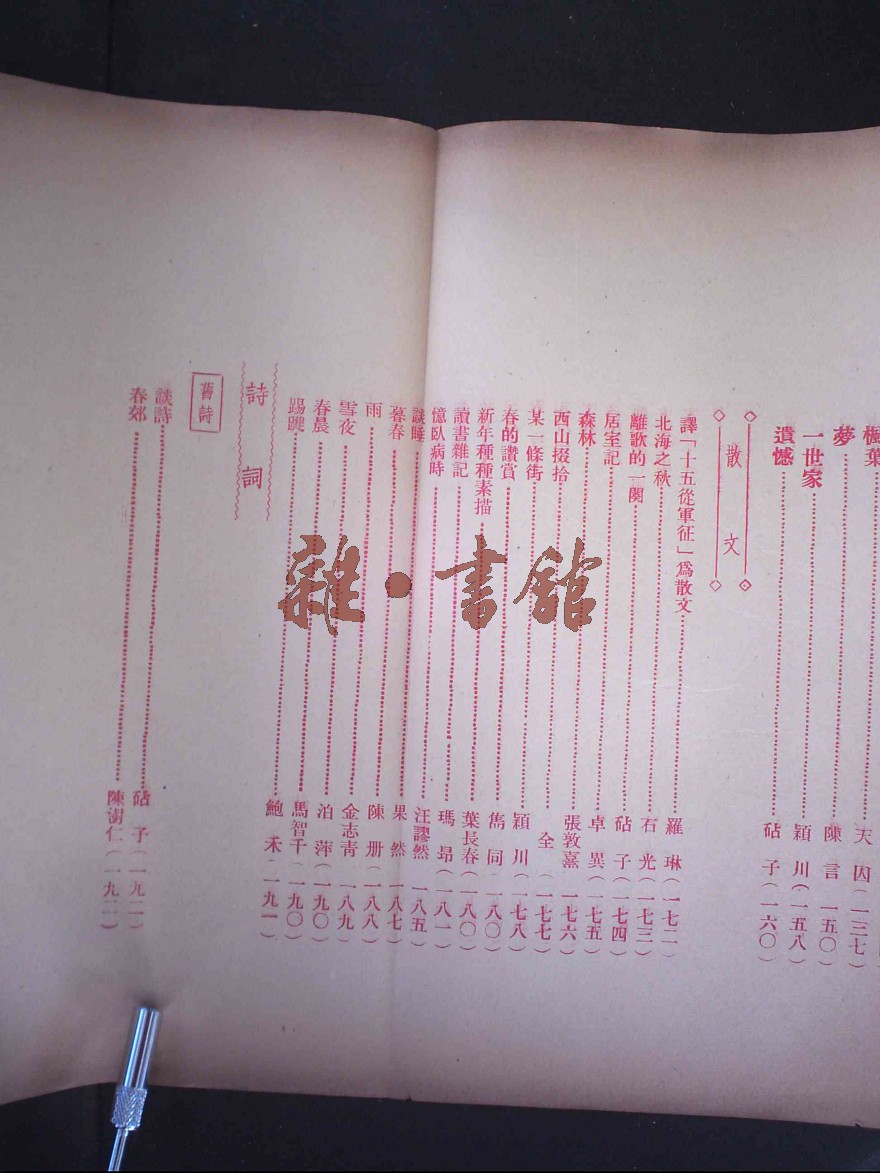 楓葉……天囚(一三七)
夢……陳言(一五〇)
一世家……穎川(一五八)
遺憾……砧子(一六〇)
散文
譯「十五從軍征」爲散文……羅琳(一七二)
北海之秋……石光(一七三)
離歌的一闋……砧子(一七四)
居室記……卓異(一七五)
森林……張敦熹(一七六)
西山掇拾……全(一七七)
某一條街……穎川(一七八)
春的讚賞……雋同(一八〇)
新年種種素描……葉長春(一八〇)
讀書雜記……瑪昻(一八一)
憶臥病時……汪謬然(一八五)
談睡……果然(一八七)
暮春……陳册(一八八)
雨……金志青(一八九)
雪夜……泊萍(一九〇)
春晨……馬智千(一九〇)
踢踺……鮑禾(一九一)
詩詞
舊詩
談詩……砧子(一九二)
春郊……陳澍仁(一九二)
雜·書館